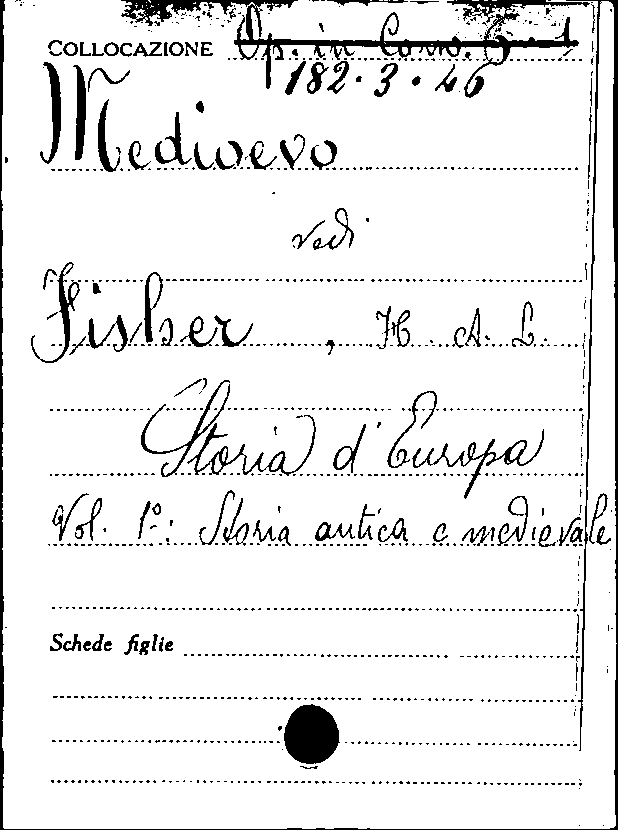 COLLOCAZIONE Op. in Corso. 6 - 1
182.3.46
Medioevo
vedi
Fisher, H. A. L.
Storia d'Europa
Vol. 1º: Storia antica e medievale
Schede figlie